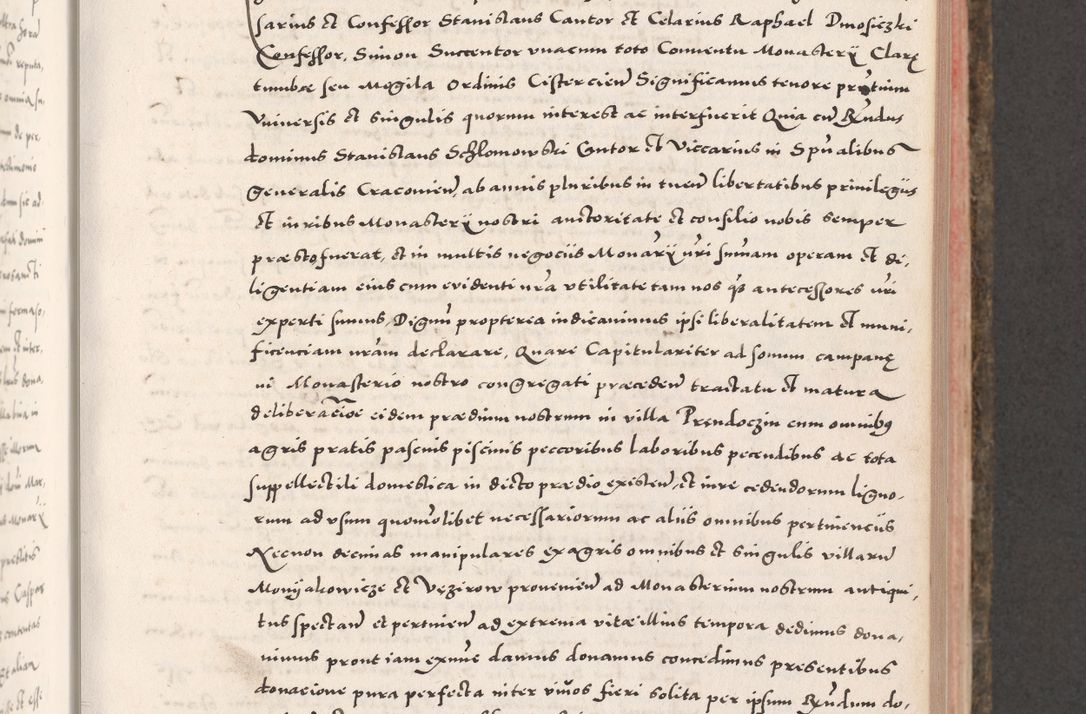 sarius et Confessor Stanislaus Cantor et Celarius Raphael Dmosiczki
Confessor, Simon Succentor vnacum toto Conuentu Monasterÿ Clarę
tumbæ seu Mogila Ordinis Cistercien Significamus tenore pr̃tium
Vniuersis et singulis quorum interest ac interfuerit Quia cũ Rñdus
dominus Stanislaus Schlomowski Cantor et Viccarius in Spũalibus
generalis Cracouien, ab annis pluribus in tuen libertatibus priuilegijs
et iuribus Monasterÿ nostri auctoritate et consilio nobis semper
præsto fuerat, et in multis negociis Monarÿ ñri sum̃am operam et di,
ligentiam eius cum euidenti nr̃a vtilitate tam nos q̃s antecessores nr̃i
experti sumus, Dignũ propterea indicauimus ipsi liberalitatem et muni,
ficenciam nr̃am declarare, Quare Capitulariter ad sonum campanę
in Monasterio nostro congregati præceden tractatu et matura
deliberac̃ioe eidem prædium nostrum in villa Prendoczin cum omnibꝯ
agris pratis pascuis piscinis peccoribus laboribus pecudibus ac tota
suppellectili domestica in dicto prædio existen, et iure cedendorum ligno-
rum ad vsum quomõlibet necessariorum ac aliis omnibus pertinenciis
Necnon decimas manipulares ex agris omnibus et singulis villarũ
Monijakowicze et Vęzerow prouenien ad Monasterium nostrum antiqui,
tus spectan et pertinen ad extrema vitæ illius tempora dedimus dona,
uimus prout iam exnũc damus donamus concedimus presentibus
donacione pura perfecta inter viũos fieri solita per ipsum Rñdum do,